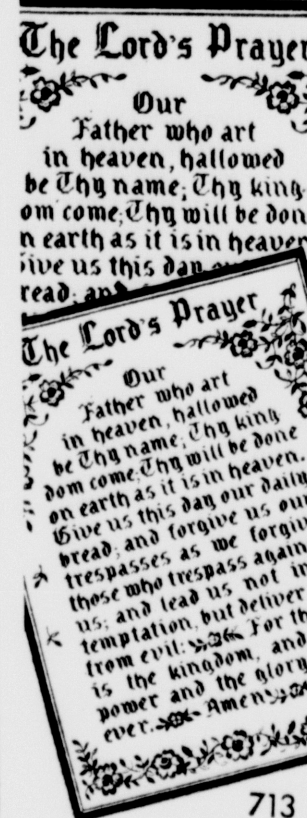 The Lord's Prayer
Our
Father who art
in heaven, hallowed
be Thy name; Thy king
om come; Thy will be don
n earth as it is in heaven
ive us this day
read; and
The Lord's Prayer
Our
Father who art
in heaven, hallowed
be Thy name; Thy king
dom come; Thy will be done
on earth as it is in heaven.
Give us this day our daily
bread; and forgive us our
trespasses as we forgiv
those who trespass again
us; and lead us not in
temptation, but deliver
from evil: For th
is the kingdom, and
power and the glor
ever. Amen.
713